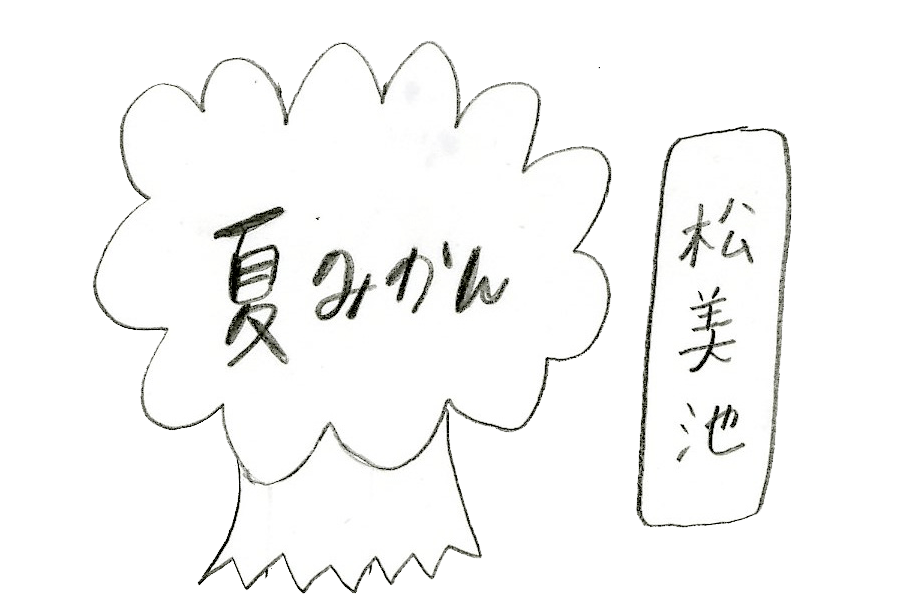 夏みかん
松美池